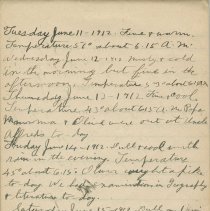 Tuesday June 11 - 1912. Fine & warm.
Temperature 57° about 6.15 A.M.
Wednesday June 12 - 1912 Misty & cold
in the morning but fine in the
afternoon. Temperature about 6.15 A.M.
Thursday June 13 - 1912. Fine & cool
Temperature 45° about 6.15 A.M. Papa
Mamma & were out at Uncle
Alfreds to-day
Friday June 14 - 1912. Dull & cool with
rain in the evening. Temperature
45° about 6.15. Clare
to-day. We had examination in Geography
& literature to-day.
Saturday June 15 - 1912. Dull